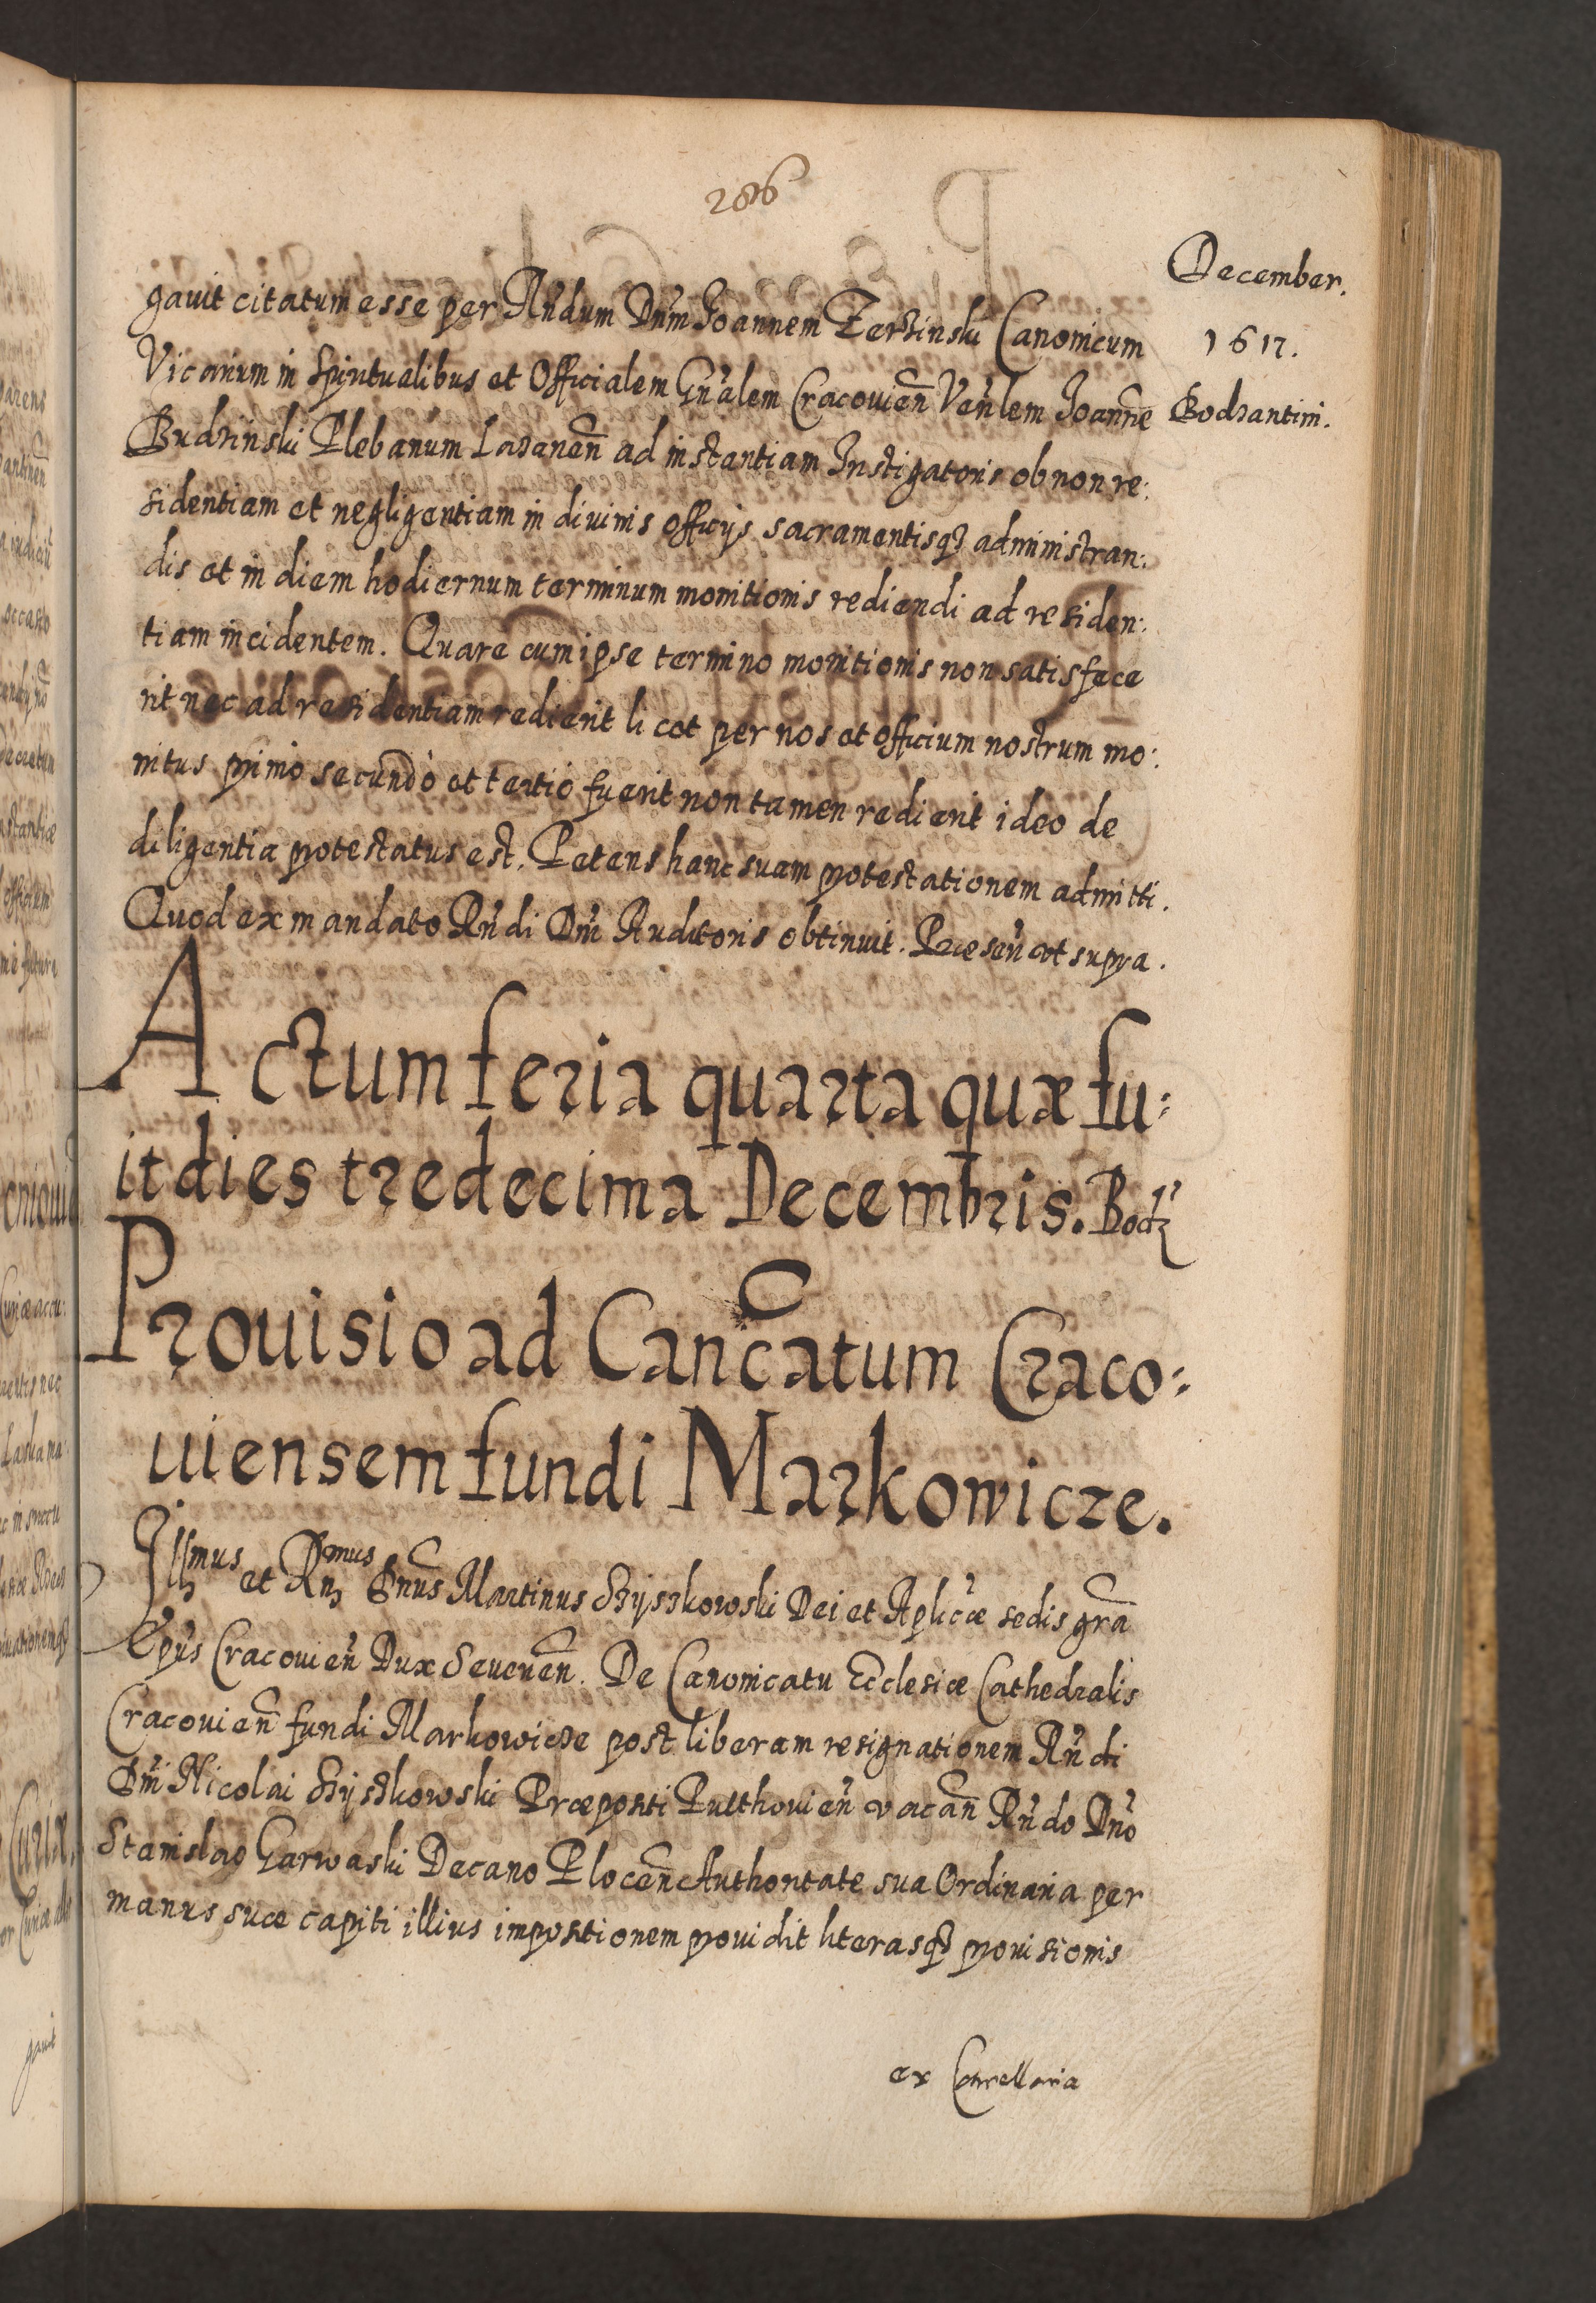 286
December.
1617.
Bodzantini.
gauit citatum esse per Rńdum Dńm Joannem Zerzinski Canonicum
Vicarium in Spiritualibus et Officialem Gńalem Cracouień Veńlem Joannē
Budzinski Plebanum Lazanen̄ ad instantiam Instigatoris ob non re:
sidentiam et negligentiam in diuinis officijs sacramentisqȝ administran:
dis et in diem hodiernum terminum monitionis rediendi ad residen:
tiam incidentem. Quare cum ipse termino monitionis non satisfece
rit nec ad residentiam redierit licet per nos et officium nostrum mo:
nitus primo secundò et tertiò fuerit non tamen redierit ideo de
diligentia protestatus est. Petens hanc suam protestationem admitti.
Quod ex mandato Rńdi Dńi Auditoris obtinuit. Præseń ut supra.
Actum feria quarta quæ fu:
it dies tredecima Decembris. Bodz
Prouisio ad Canc̄atum Craco:
uiensem fundi Markowicze.
Illmus et Rńmus Dnūs Martinus Szyszkowski Dei et Aplicæ sedis gr̄a
Epūs Cracouień Dux Seuerień. De Canonicatu Ecclesiæ Cathedralis
Cracouień fundi Markowicze post liberam resignationem Rńdi
Dńi Nicolai Szyszkowski Præpositi Pulthouień vacan̄ Rńdo Dńo
Stanislao Garwaski Decano Plocen̄ Authoritate sua Ordinaria per
manus suæ capiti illius impositionem prouidit literasqȝ prouisionis
ex Cancellaria